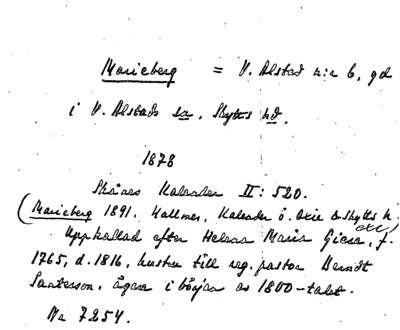 Marieberg = V. Alstad n:r 6, gd
i V. Alstads sn, Skytts hd.
1878
Skånes Kalender II: 520.
(Marieberg 1891. Wallmer, Kalender ö. Oxie o Skytts h. etc)
Uppkallad efter Helena Maria Giese, f.
1765, d. 1816, hustru till reg. pastor Berndt
Santesson, ägare i början av 1800-talet.
Na 7254.